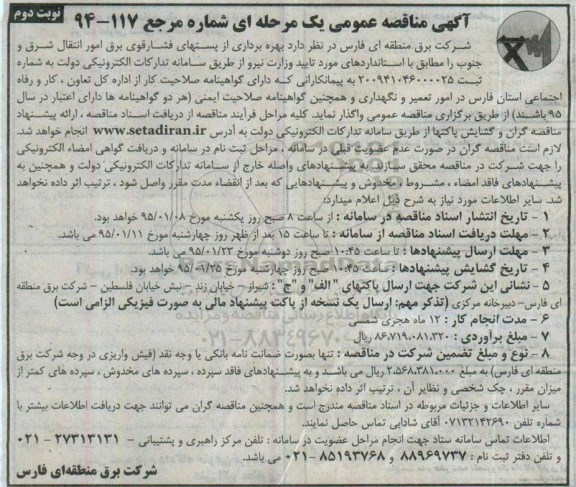 نوبت دوم
آگهی مناقصه عمومی یک مرحله ای شماره مرجع ۱۱۷-۹۴
شرکت برق منطقه ای فارس در نظر دارد بهره برداری از پستهای فشارقوی برق امور انتقال شرق و
جنوب را مطابق با استانداردهای مورد تایید وزارت نیرو از طریق سامانه تدارکات الکترونیکی دولت به شماره
ثبت ۲۰۰۹۴۱۰۴۶۰۰۰۰۲۵ به پیمانکارانی که دارای گواهینامه صلاحیت کار از اداره کل تعاون ، کار و رفاه
اجتماعی استان فارس در امور تعمیر و نگهداری و همچنین گواهینامه صلاحیت ایمنی (هر دو گواهینامه ها دارای اعتبار در سال
۹۵ باشند) از طریق برگزاری مناقصه عمومی واگذار نماید. کلیه مراحل فرآیند مناقصه از دریافت اسناد مناقصه ، ارائه پیشنهاد
مناقصه گران و گشایش پاکتها از طریق سامانه تدارکات الکترونیکی دولت به آدرس www.setadiran.ir انجام خواهد شد.
لازم است مناقصه گران در صورت عدم عضویت قبلی در سامانه ، مراحل ثبت نام در سامانه و دریافت گواهی امضاء الکترونیکی
را جهت شرکت در مناقصه محقق سازند. به پیشنهادهای واصله خارج از سامانه تدارکات الکترونیکی دولت و همچنین به
پیشنهادهای فاقد امضاء ، مشروط ، مخدوش و پیشنهادهایی که بعد از انقضاء مدت مقرر واصل شود ، ترتیب اثر داده نخواهد
شد. سایر اطلاعات مورد نیاز به شرح ذیل اعلام میدارد:
۱ - تاریخ انتشار اسناد مناقصه در سامانه : از ساعت ۸ صبح روز یکشنبه مورخ ۹۵/۰۱/۰۸ خواهد بود.
۲ - مهلت دریافت اسناد مناقصه از سامانه : تا ساعت ۱۵ بعد از ظهر روز چهارشنبه مورخ ۹۵/۰۱/۱۱ می باشد.
۳ - مهلت ارسال پیشنهادها : تا ساعت ۱۰:۴۵ صبح روز دوشنبه مورخ ۹۵/۰۱/۲۳ می باشد.
۴ - تاریخ گشایش پیشنهادها : ساعت ۱۰:۴۵ صبح روز چهارشنبه مورخ ۹۵/۰۱/۲۵ خواهد بود.
۵ - نشانی این شرکت جهت ارسال پاکتهای " الف" و "ج" : شیراز - خیابان زند - نبش خیابان فلسطین - شرکت برق منطقه
ای فارس- دبیرخانه مرکزی (تذکر مهم: ارسال یک نسخه از پاکت پیشنهاد مالی به صورت فیزیکی الزامی است)
۶ - مدت انجام کار : ۱۲ ماه هجری شمسی
۷ - مبلغ برآوردی : ۸۶،۷۱۹،۰۸۱،۳۳۰ ریال
۸ - نوع و مبلغ تضمین شرکت در مناقصه : تنها بصورت ضمانت نامه بانکی یا وجه نقد (فیش واریزی در وجه شرکت برق
منطقه ای فارس) به مبلغ ۲،۵۶۸،۳۸۱،۰۰۰ ریال می باشد و به پیشنهادهای فاقد سپرده ، سپرده های مخدوش ، سپرده های کمتر از
میزان مقرر ، چک شخصی و نظایر آن ، ترتیب اثر داده نخواهد شد.
سایر اطلاعات و جزئیات مربوطه در اسناد مناقصه مندرج است و همچنین مناقصه گران می توانند جهت دریافت اطلاعات بیشتر با
شماره تلفن ۰۷۱۳۲۱۴۲۶۹۰ آقای شادابی تماس حاصل نمایند.
اطلاعات تماس سامانه ستاد جهت انجام مراحل عضویت در سامانه : تلفن مرکز راهبری و پشتیبانی - ۲۷۳۱۳۱۳۱ - ۰۲۱
و تلفن دفتر ثبت نام : ۸۸۹۶۹۷۳۷ و ۸۵۱۹۳۷۶۸-۰۲۱ می باشد.
شرکت برق منطقه‌ای فارس